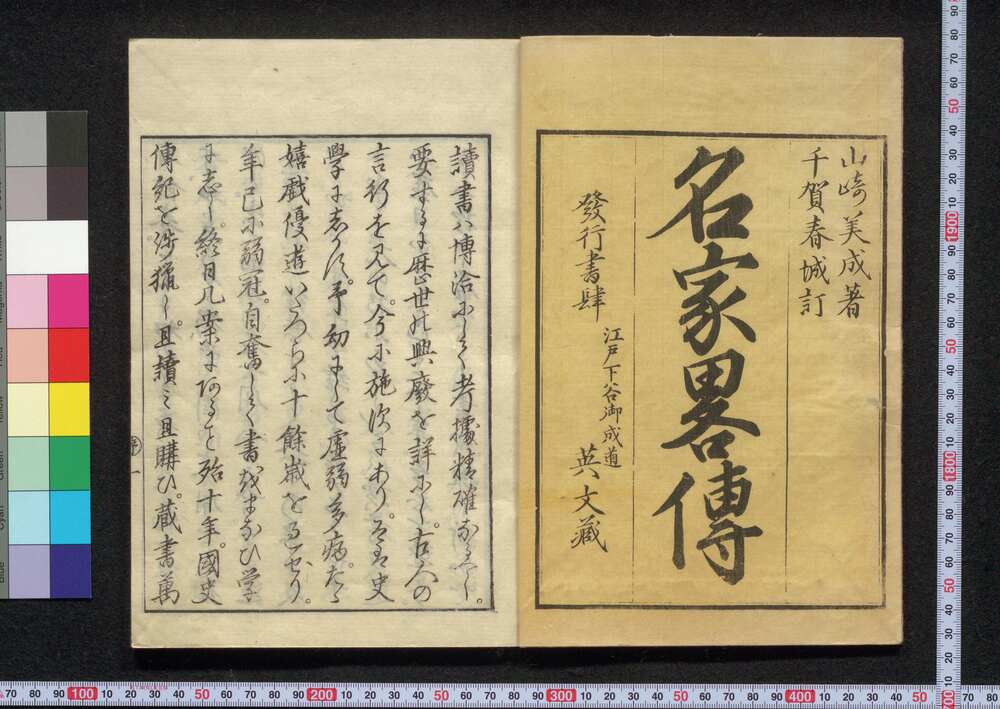 山崎美成著
千賀春城訂
名家畧傳
發行書肆
江戸下谷御成道
英文藏
讀書ハ博洽にして考據精確なるべし。
要するに歴世の興廢を詳にし。古人の
言行を見て。今に施次にあり。そは史
學にしか凡。予幼にして虚弱多病。たゞ
嬉戲優遊いたづらに十餘歳を過せり。
年已に弱冠。自奮して書をまなひ学
に志し。終日几案によること殆十年。國史
傳紀を渉獵し。且讀ミ且購ひ。蔵書萬
序
一